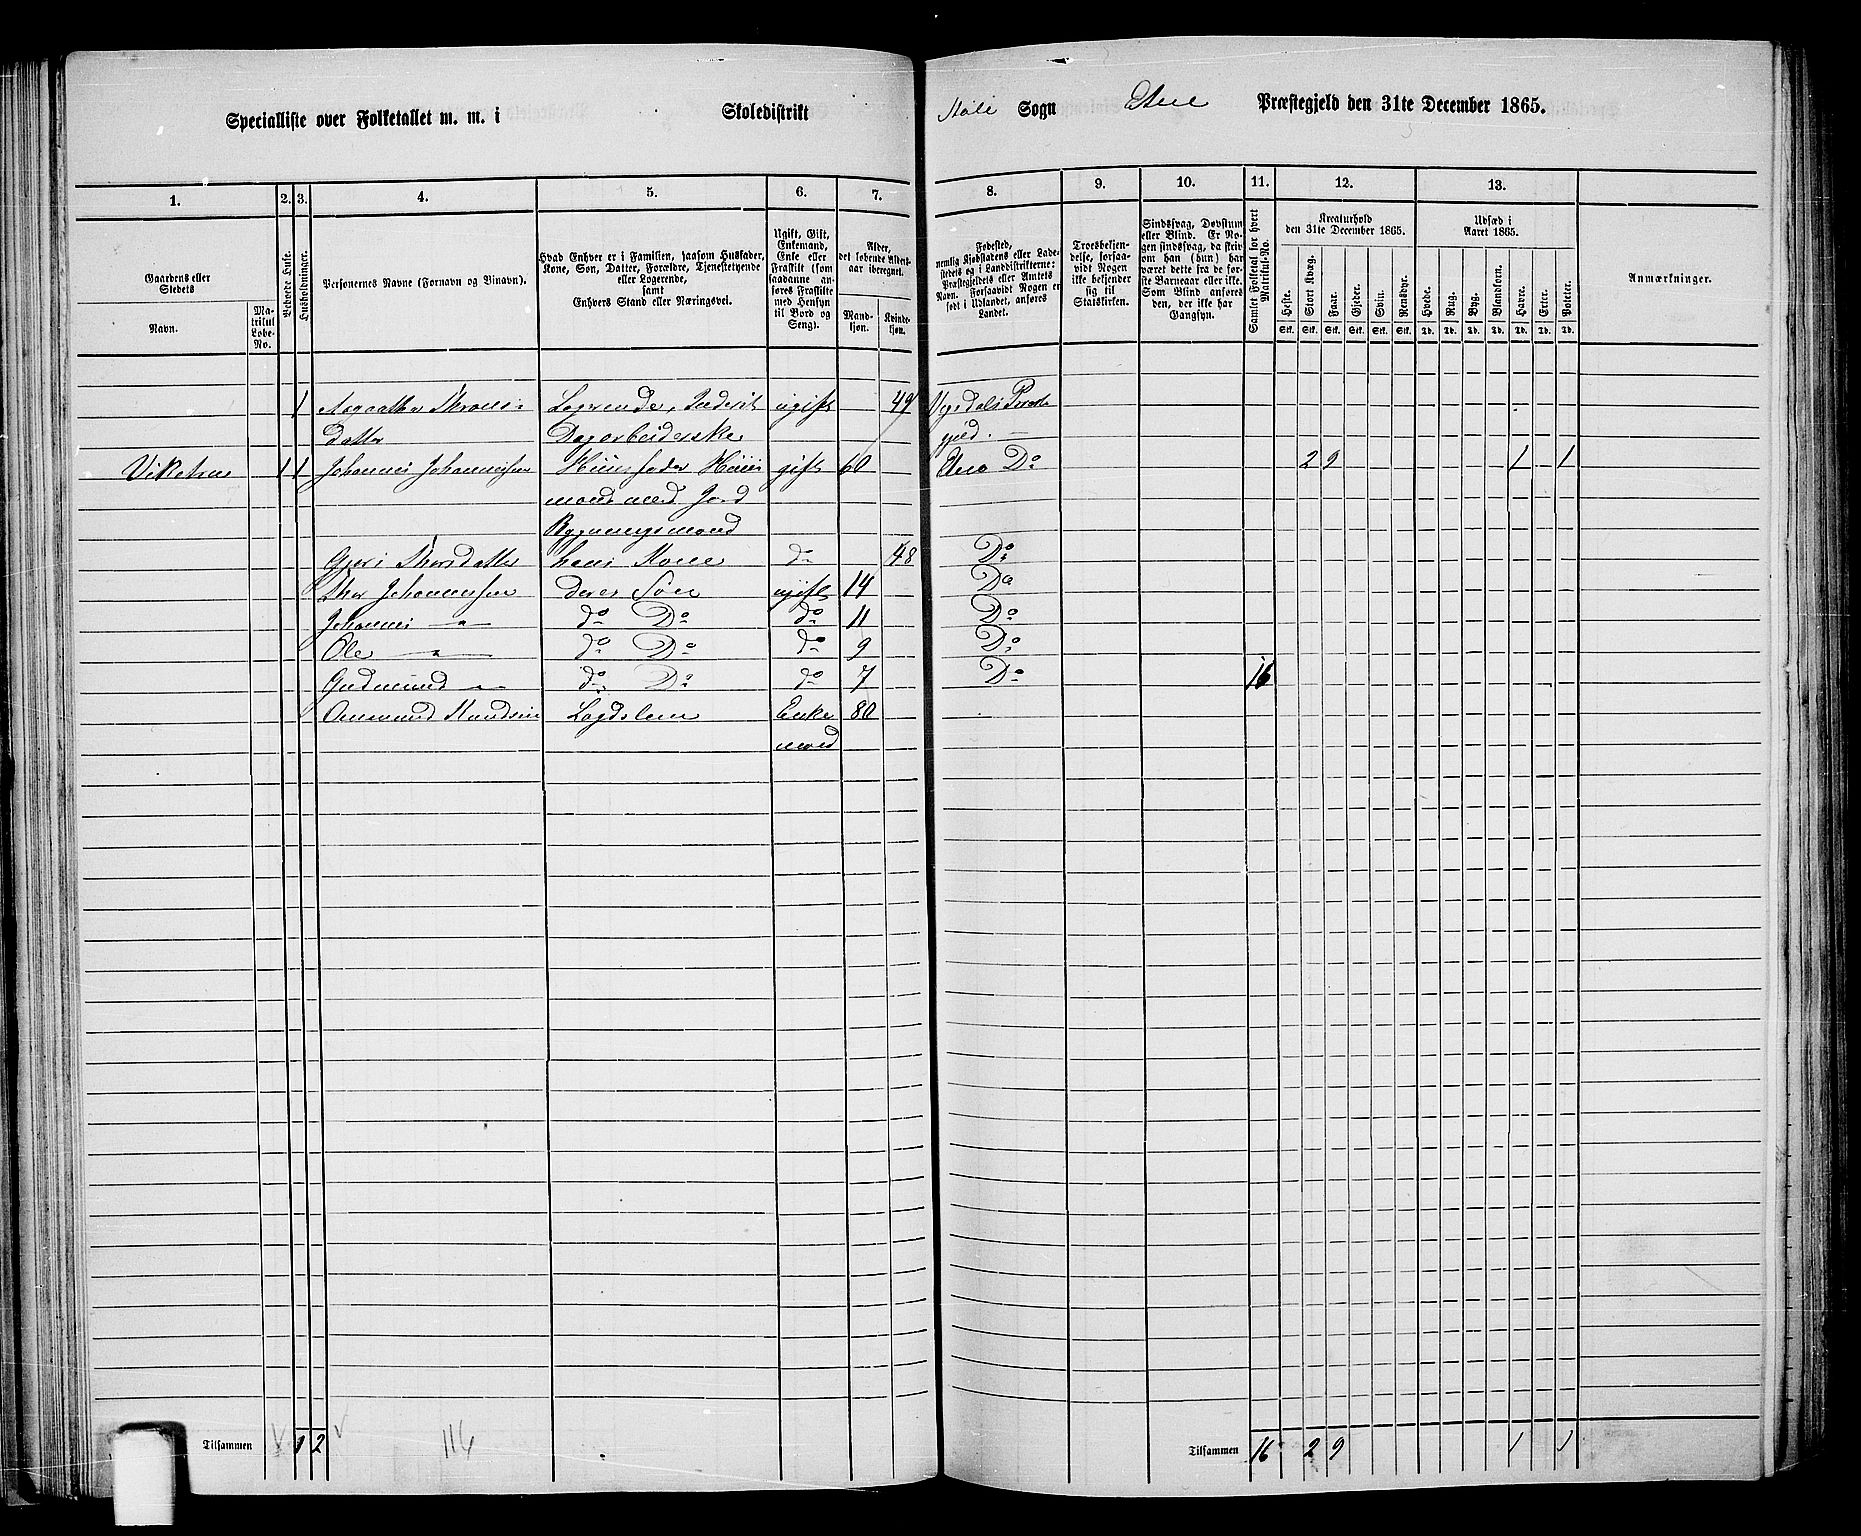 Specialliste over Folketallet m. m. i Skoledistrikt Støle Sogn Etne Præstegjeld den 31te December 1865.
1. 2. 3. 4. 5. 6. 7. 8. 9. 10. 11. 12. 13.
Gaardens eller Stedets
Navn.
Matrikul Løbe-No.
Beboede Huse.
Husholdninger.
Personernes Navne (Fornavn og Binavn).
Hvad Enhver er i Familien, saasom Husfader, Kone, Søn, Datter, Forældre, Tjenestetyende eller Logerende,
samt
Enhvers Stand eller Næringsvei.
Ugift, Gift, Enkemand, Enke eller Fraskilt (som saadanne anføres Fraskilte med Hensyn til Bord og Seng).
Alder, det løbende Aldersaar iberegnet.
Mandkjøn.
Kvindekjøn.
Fødested, nemlig Kjøbstadens eller Ladestedets og i Landdistrikterne: Præstegjeldets eller Amtets Navn. Forsaavidt Nogen er født i Udlandet, anføres Landet.
Troesbekjendelse, forsaavidt Nogen ikke bekjender sig til Statskirken.
Sindssvag, Døvstum eller Blind. Er Nogen sindssvag, da skriv om han (hun) har været dette fra de første Barneaar eller ikke. Som Blind anføres den, der ikke har Gangsyn.
Samlet Folketal for hvert Matrikul-No.
Kreaturhold
den 31te December 1865.
Heste. Stort Kvæg. Faar. Gjeder. Svin. Rensdyr.
Stk. Stk. Stk. Stk. Stk. Stk.
Udsæd i
Aaret 1865.
Hvede. Rug. Byg. Blandkorn. Havre. Erter. Poteter.
Td. Td. Td. Td. Td. Td. Td.
Anmærkninger.
1 Logerende, Inderst ugift 49
datter Dagarbeiderske gjeld. —
1 1 Johannes Johannessen Huusfader Huus gift 60 Etne Do 2 9 1 1
mand med Jord
Bygningsmand
Thorsdatter hans Kone do 48 Do
Thor Johannessen deres Søn ugift 14 Do
Johannes " do Do do 11 Do
Ole " do Do do 9 Do
Gudmund " do Do do 7 Do 16
Knudsen Lægdslem Enke 80
mand
Tilsammen 1 2 116 Tilsammen 16 2 9 1 1